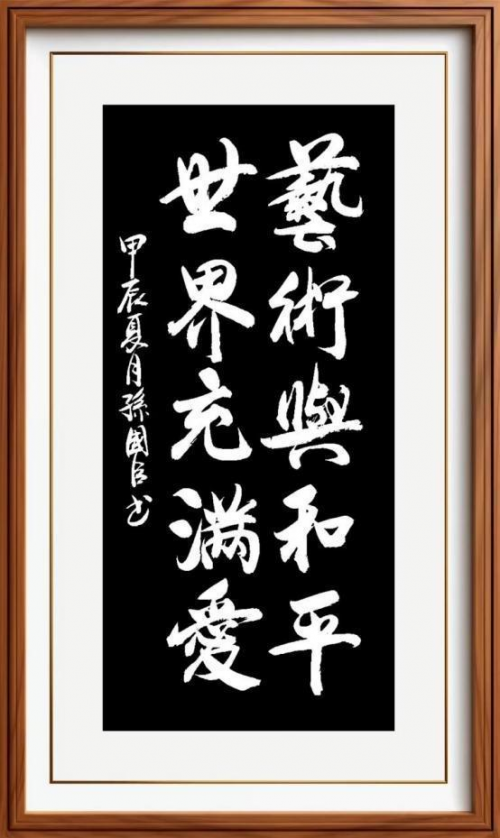 藝術與和平
世界充满愛
甲辰夏月孫國臣书